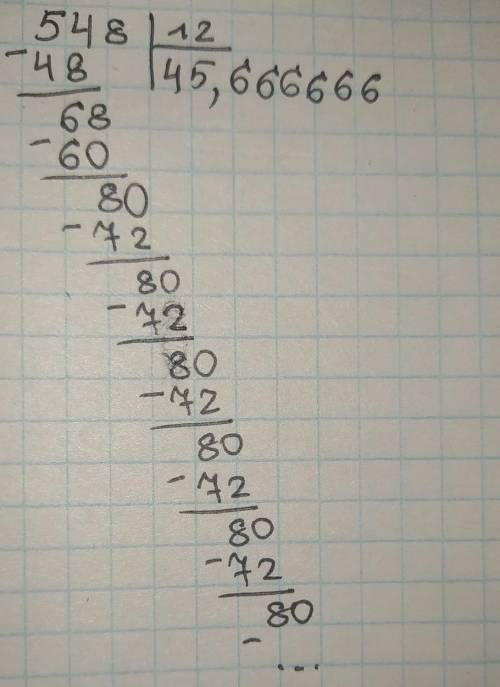 548 | 12
- 48 | 45,666666
68
- 60
80
- 72
80
- 72
80
- 72
80
- 72
80
- 72
80
- ...